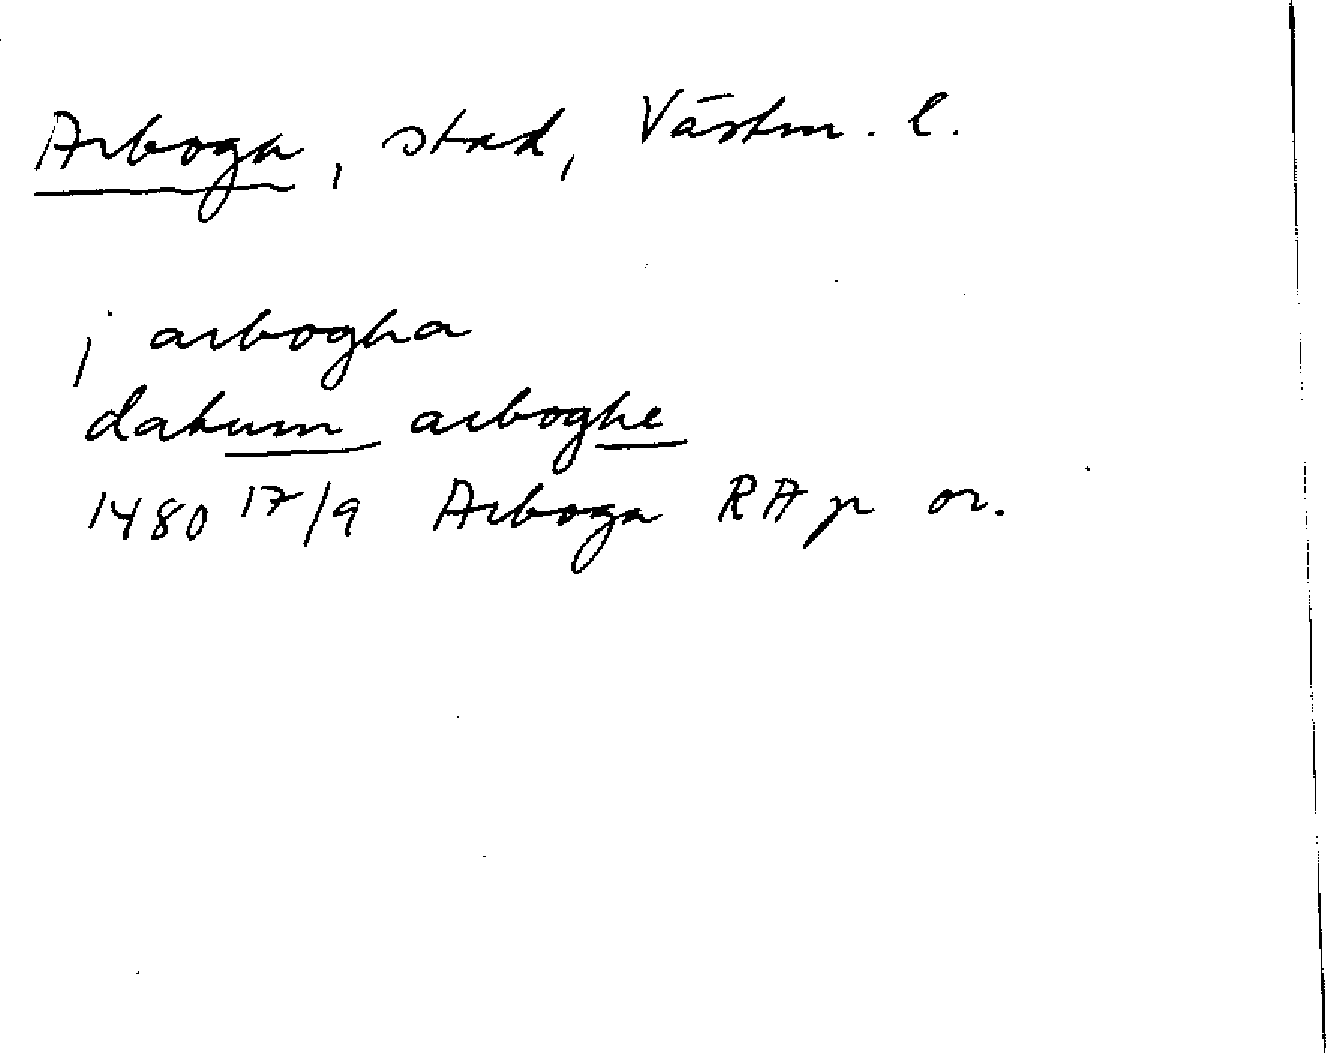 Arboga, stad, Västm. l.
j arbogha
datum arboghe
1480 17/9 Arboga RA p or.